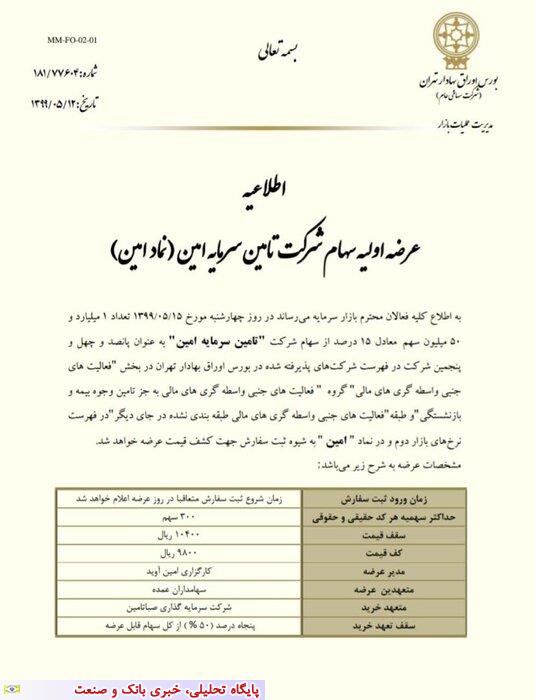 MM-FO-02-01
بسمه تعالی
شماره: ۱۸۱/۷۷۶۰۴
تاریخ: ۱۳۹۹/۰۵/۱۲
بورس اوراق بهادار تهران
(شرکت سهامی عام)
مدیریت عملیات بازار
اطلاعیه
عرضه اولیه سهام شرکت تامین سرمایه امین (نماد امین)
به اطلاع کلیه فعالان محترم بازار سرمایه می‌رساند در روز چهارشنبه مورخ ۱۳۹۹/۰۵/۱۵ تعداد ۱ میلیارد و
۵۰ میلیون سهم معادل ۱۵ درصد از سهام شرکت "تامین سرمایه امین" به عنوان پانصد و چهل و
پنجمین شرکت در فهرست شرکت‌های پذیرفته شده در بورس اوراق بهادار تهران در بخش "فعالیت های
جنبی واسطه گری های مالی" گروه "فعالیت های جنبی واسطه گری های مالی به جز تامین وجوه بیمه و
بازنشستگی" و طبقه "فعالیت های جنبی واسطه گری های مالی طبقه بندی نشده در جای دیگر" در فهرست
نرخ‌های بازار دوم و در نماد "امین" به شیوه ثبت سفارش جهت کشف قیمت عرضه خواهد شد.
مشخصات عرضه به شرح زیر می‌باشد:
زمان ورود ثبت سفارش زمان شروع ثبت سفارش متعاقبا در روز عرضه اعلام خواهد شد
حداکثر سهمیه هر کد حقیقی و حقوقی ۳۰۰ سهم
سقف قیمت ۱۰۴۰۰ ریال
کف قیمت ۹۸۰۰ ریال
مدیر عرضه کارگزاری امین آوید
متعهدین عرضه سهامداران عمده
متعهد خرید شرکت سرمایه گذاری صباتامین
سقف تعهد خرید پنجاه درصد (۵۰ %) از کل سهام قابل عرضه
پایگاه تحلیلی، خبری بانک و صنعت